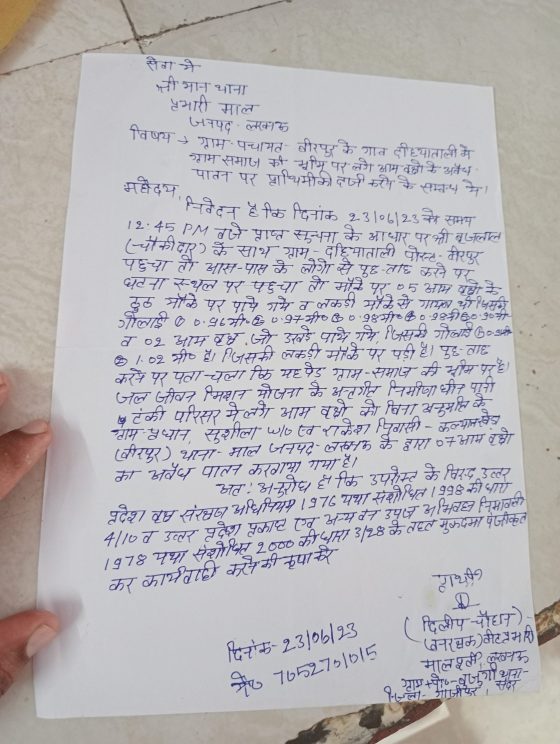 सेवा मे
श्री मान थाना
प्रभारी माल
जनपद - लखनऊ
विषय → ग्राम-पंचायत - वीरपुर के गाव दहियाताली मे
ग्राम समाज की भूमि पर लगे आम वृक्षो के अवैध
पातन पर प्राथिमीकी दर्ज करने के सम्बन्ध मे।
महोदय,
निवेदन है कि दिनांक 23/06/23 को समय
12.45 PM बजे प्राप्त सूचना के आधार पर श्री बृजलाल
(चौकीदार) के साथ ग्राम - दहियाताली पोस्ट - वीरपुर
पहुचा तो आस-पास के लोगो से पुछ-ताछ करने पर
घटना स्थल पर पहुचा तो मौके पर 05 आम वृक्षो के
ठुठ मौके पर पाये गये व लकडी मौके से गायब थी जिसकी
गोलाई ① 0.96मी० ② 0.97मी० ③ 0.98मी० ④ 0.98मी० ⑤
व 02 आम वृक्ष जो उखडे पाये गये, जिसकी गोलाई ①
② 1.02 मी० है। जिसकी लकडी मौके पर पडी है। पुछ-ताछ
करने पर पता चला कि यह पेड ग्राम-समाज की भूमि पर है।
जल जीवन मिशन योजना के अन्तर्गत निर्माणाधीन पानी
टंकी परिसर मे लगे आम वृक्षो को बिना अनुमति के
ग्राम-प्रधान सुशीला W/O एव राकेश निवासी - कल्याणखेड़ा
(वीरपुर) थाना - माल जनपद - लखनऊ के द्वारा 07 आम वृक्षो
का अवैध पातन करवाया गया है।
अतः अनुरोध है कि उपरोक्त के विरुद्ध उत्तर
प्रदेश वृक्ष संरक्षण अधिनियम 1976 यथा संशोधित 1998 की धारा
4/10 व उत्तर प्रदेश प्रकाष्ठ एव अन्य वन उपज अभिवहन नियमावली
1978 यथा संशोधित 2000 की धारा 3/28 के तहत मुकदमा पंजीकृत
कर कार्यवाही करने की कृपा करे
प्रार्थी
(दिलीप चौहान)
(वनरक्षक) वीट प्रभारी
माल लखनऊ
दिनांक - 23/06/23
मो० 7052701015
ग्राम+पो०- थाना-
जिला - गाजीपुर। सदर